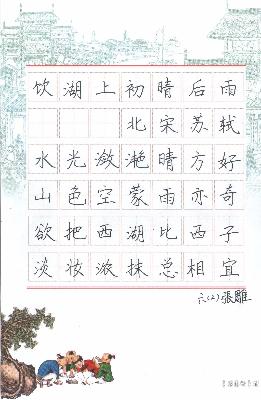 饮湖上初晴后雨
北宋苏轼
水光潋滟晴方好
山色空蒙雨亦奇
欲把西湖比西子
淡妆浓抹总相宜
六(2)張雕